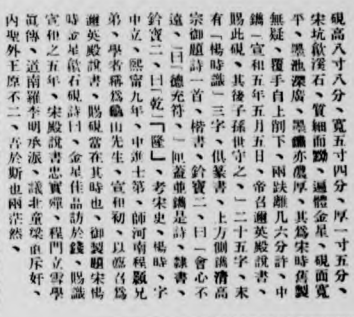 硯高八寸八分、寬五寸四分、厚一寸五分、
宋坑歙溪石、質細而黝、遍體金星、硯面寬
平、墨池深廣、墨鏽亦濃厚、其為宋時舊製
無疑、覆手自上削下、兩趺離几六分許、中
鐫「宣和五年五月五日、帝召邇英殿說書、
賜此硯、其後子孫世守之、」二十五字、末
有「楊時識」三字、俱篆書、上方側鐫清高
宗御題詩一首、楷書、鈐寶二、曰「會心不
遠、」曰「德充符、」匣蓋並鐫是詩、隸書、
鈐寶二、曰「乾」「隆」、考宋史、楊時、字
中立、熙寧九年、中進士第、師河南程顥兄
弟、學者稱為龜山先生、宣和初、以薦召為
邇英殿說書、賜硯當在其時也、御製題宋楊
時金星歙石硯詩曰、金星佳品訪於錢、賜識
宣和之五年、宋殿說書忠實殫、程門立雪學
真傳、道南羅李明承派、議北童梁直斥奸、
內聖外王原不二、吾於斯也兩茫然、